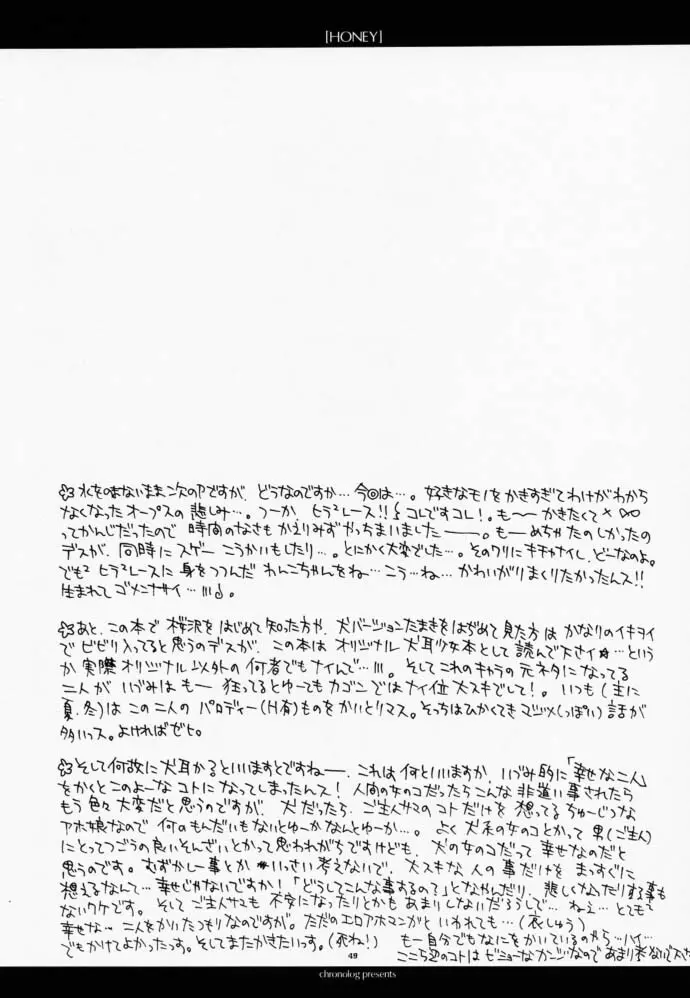 [HONEY]
水をのまないまま次のPですが、どうなのですか…今回は…。好きなモノをかきすぎてわけがわから
なくなったオープスの悲しみ…。つーか、ヒラ²レース!! コレですコレ!。も〜〜かきたくて
ってかんじだったので 時間のなさもかえりみずやっちまいましたー――。もーめちゃたのしかったの
デスが、同時にスゲー こうかいもしたり…。とにかく大変でした…。そのワリにキチャナイし、どーなのよ。
でも² ヒラ²レースに身をつつんだ わんこちゃんをね…こう…ね… かわいがりまくりたかったんス!!
生まれて ゴメンナサイ…!!!。
あと、この本で 桜沢をはじめて知った方や、犬バージョンたまきをはぢめて見た方は かなりのイキヲイ
で ビビリ入ってると思うのデスが、この本は オリジナル 犬耳少女本として 読んで下さイ☆…という
か 実際オリジナル以外の何者でもナイんで…!!!。そしてこれのキャラの元ネタになってる
二人が いづみはもー 狂ってるとゆーてもカゴンではナイ位 大スキでして!。いつも(主に
夏、冬)は この二人の パロディー(H有)ものをかいとりマス。そっちはひかくてきマジメ(っぽい)話が
多いっス。よければゼヒ。
そして何故に犬耳かるといいますとですねー、これは何といいますか、いづみ的に「幸せな二人」
をかくとこのよーな コトになってしまったんス! 人間の女のコだったら こんな 非道い事されたら
もう 色々 大変だと思うのですが、犬だったら、ご主人サマのコトだけを 想ってる ちゅーじつな
アホ娘なので 何のもんだいもないとゆーかなんとゆーか…。よく 犬系の女のコとかって 男(ご主人)
にとってつごうの良いそんざいとかって思われがちですけども、犬の女のコだって 幸せなのだと
思うのです。むずかしー事とか いっさい考えないで、大スキな 人の事だけを まっすぐに
想えるなんて…幸せじゃないですか!「どうしてこんな事するの?」となやんだり、悲しくなったりする事も
ないワケです。そして ご主人サマも 不安になったりとかも あまりしないだろうしで… ねえ… とても²
幸せな… 二人をかいたつもりなのですが。ただのエロアホマンガと いわれても…(哀しゅう)
でもかけてよかったっす。そしてまたかきたいっす。(死ね!)
もー自分でもなにをかいているのやら…ハイ…
ここら辺のコトは ビミョーなので あまり
49
chronolog presents